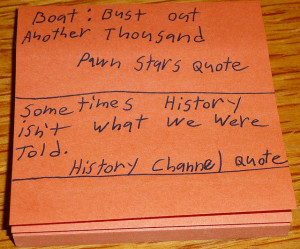 Boat: Bust out
Another Thousand
Pawn Stars Quote
Sometimes History
isn't what we were
Told.
History Channel Quote